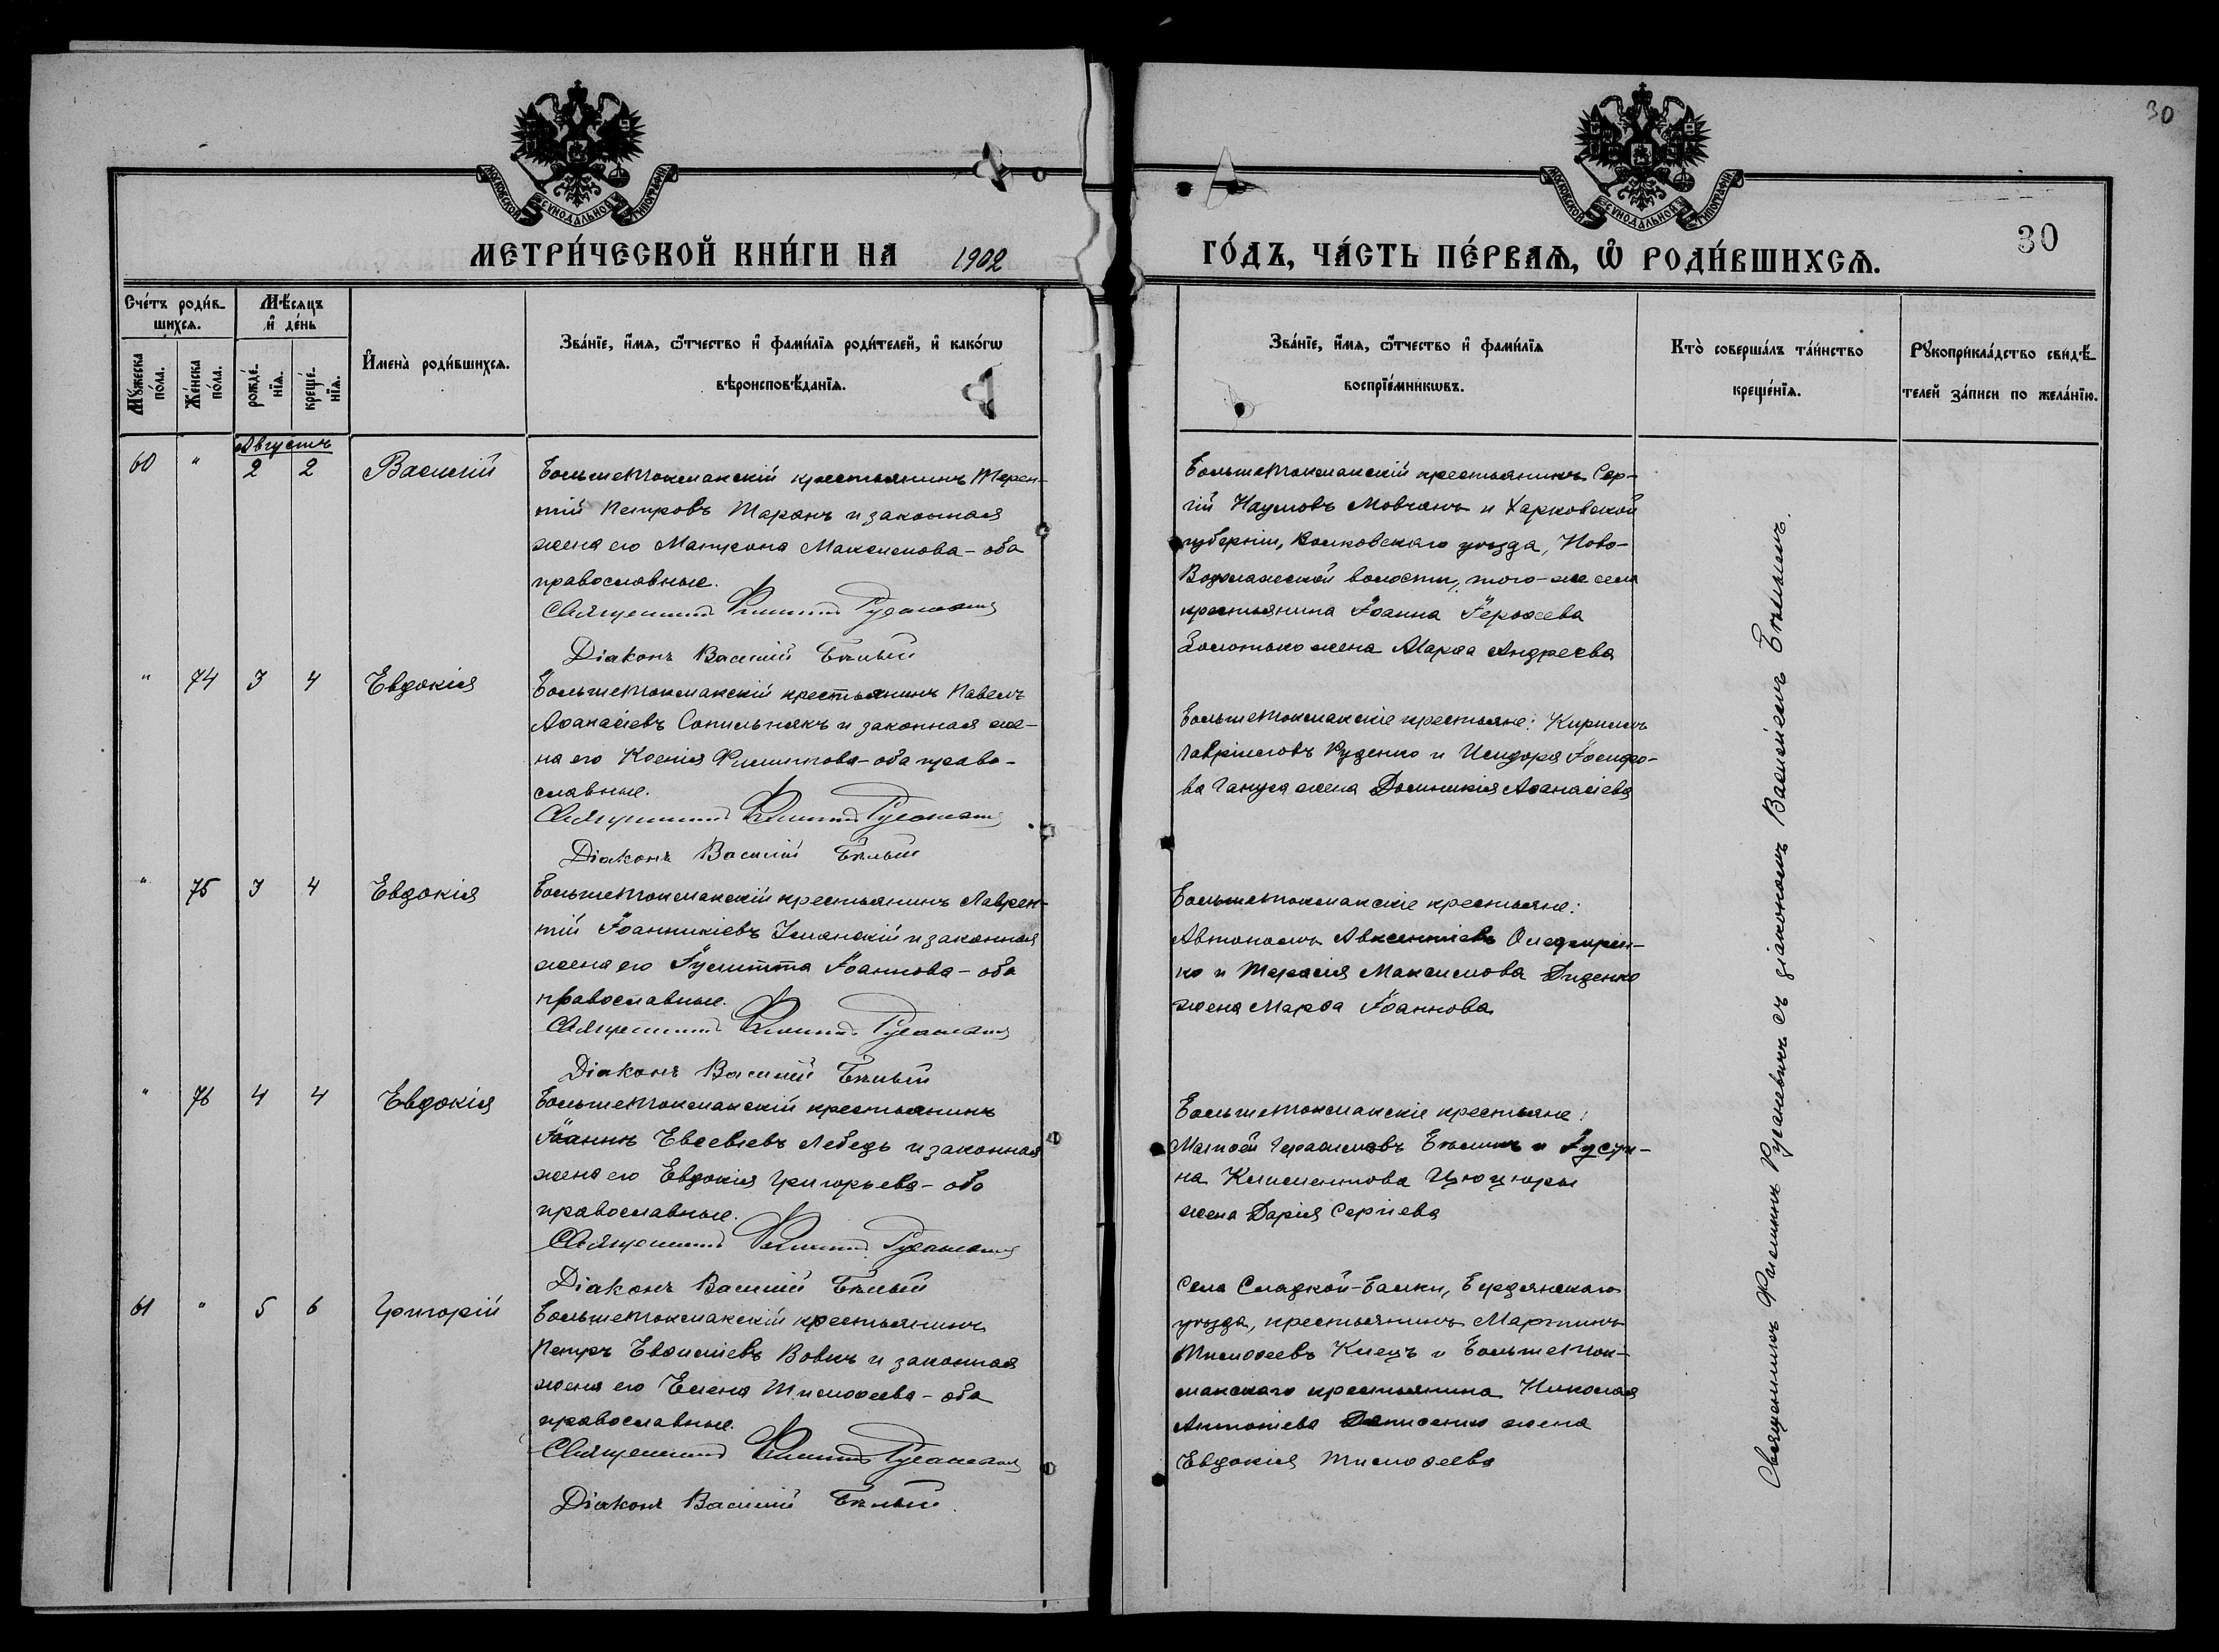 30
МОСКОВСКОЙ СѴНОДАЛЬНОЙ ТИПОГРАФІИ
МОСКОВСКОЙ СѴНОДАЛЬНОЙ ТИПОГРАФІИ
МЕТРИ́ЧЕСКОЙ КНИ́ГИ НА 1902
ГО́ДЪ, ЧА́СТЬ ПЕ́РВАѦ, Ѡ҆ РОДИ́ВШИХСѦ.
30
Сче́тъ роди́в-
шихсѧ.
Мѣ́сяцъ
и҆ де́нь
Мꙋ́жеска
по́ла.
Же́нска
по́ла.
рожде́-
нїѧ.
креще́-
нїѧ.
И҆мена̀ роди́вшихсѧ.
Зва́нїе, и҆́мѧ, ѻ҆́тчество и҆ фами́лїѧ роди́телей, и҆ како́гѡ
вѣроисповѣ́данїѧ.
Зва́нїе, и҆́мѧ, ѻ҆́тчество и҆ фами́лїѧ
воспрїе́мникѡвъ.
Кто̀ соверша́лъ та́инство
креще́нїѧ.
Рꙋкоприкла́дство свидѣ́-
телей за́писи по жела́нїю.
Августъ
60 " 2 2 Василій
Большетокмакскій крестьянинъ Терен-
тій Петровъ Таранъ и законная
жена его Матрона Максимова - оба
православные.
Священникъ Филиппъ
Діаконъ Василій Бѣлый
Большетокмакскій крестьянинъ Сер-
гій Наумовъ Мовчанъ и Харковской
губерніи, Валковскаго уѣзда, Ново-
Водолажской волости, того-же села
крестьянина Іоанна Іероѳеева
жена Марѳа Андреева
" 74 3 4 Евдокія
Большетокмакскій крестьянинъ Павелъ
Аѳанасіевъ Сопильнякъ и законная же-
на его Ксенія Филиппова - оба право-
славные.
Священникъ Филиппъ
Діаконъ Василій Бѣлый
Большетокмакскіе крестьяне: Кириллъ
Гавріиловъ Руденко и Исидора Іосифо-
ва Гануса жена Домникія Аѳанасіева
" 75 3 4 Евдокія
Большетокмакскій крестьянинъ Лаврен-
тій Іоанникіевъ и законная
жена его Іулитта Іоаннова - оба
православные.
Священникъ Филиппъ
Діаконъ Василій Бѣлый
Большетокмакскіе крестьяне:
Автономъ Авксентіевъ
ко и Тарасія Максимова Диденко
жена Марѳа Іоаннова
" 76 4 4 Евдокія
Большетокмакскій крестьянинъ
Іоаннъ Евсевіевъ Лебедь и законная
жена его Евдокія Григорьева - оба
православные.
Священникъ Филиппъ
Діаконъ Василій Бѣлый
Большетокмакскіе крестьяне:
Матѳей Герасимовъ и Іусти-
на Климентова Цюцюры
жена Дарія Сергіева
61 " 5 6 Григорій
Большетокмакскій крестьянинъ
Петръ Евѳиміевъ Вовкъ и законная
жена его Елена Тимоѳеева - оба
православные.
Священникъ Филиппъ
Діаконъ Василій Бѣлый
Села Сладкой-Балки, Бердянскаго
уѣзда, крестьянинъ Мартинъ
Тимоѳеевъ Клецъ и Большеток-
макскаго крестьянина Николая
Антоніева жена
Евдокія Тимоѳеева
Священникъ Филиппъ съ діакономъ Василіемъ Бѣлымъ.